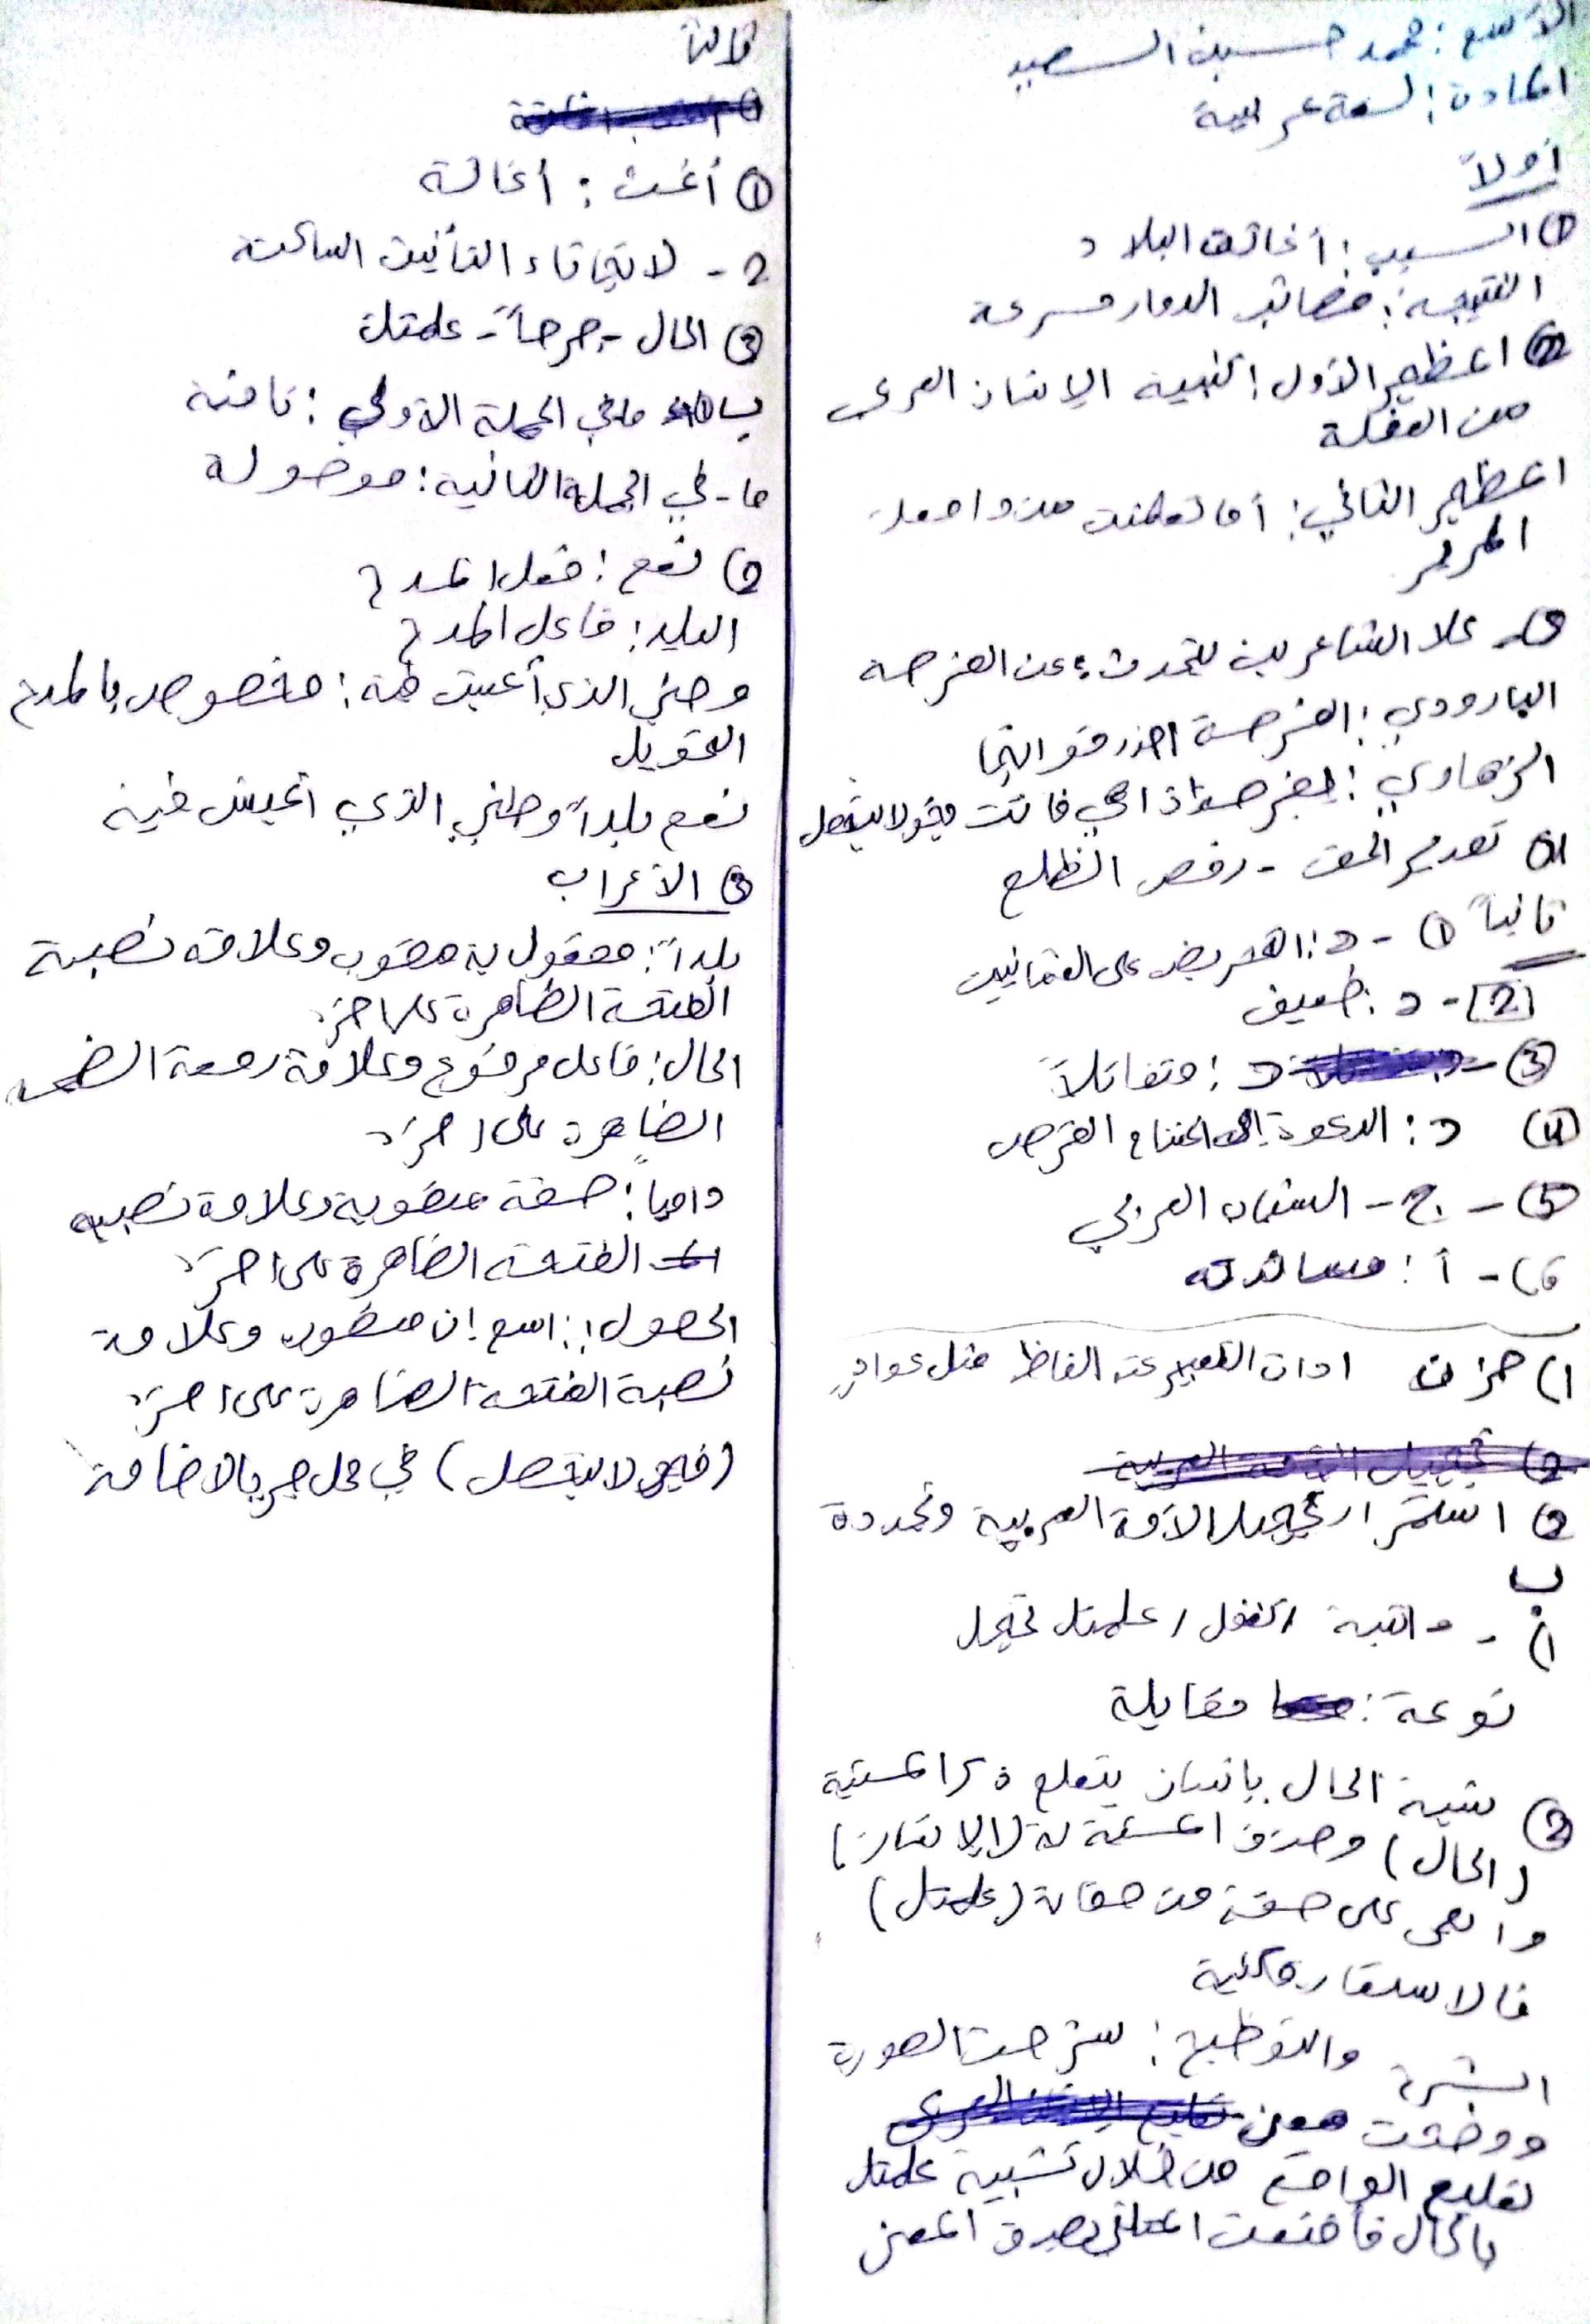 الأسم : محمد حسين السعيد
المادة : لغة عربية
أولاً
① السبب : أغاثة البلاد
النتيجة :
② المظهر الأول : تنبيه الإنسان العربي
من الغفلة
المظهر الثاني : أما تعلمت من
3- كلا الشاعرين تحدث عن الفرصة
البارودي : الفرصة احذر فواتها
الزهاوي : الفرصة اذا هي فاتت فهي لا تتصل
4) تقديم الحق - رفض الظلم
ثانياً ① - د : التحريض على العثمانيين
[2] - د : ضعيف
③ - د : متفائلاً
(4) د : الدعوة إلى اغتنام الفرص
5) - ج - الشباب العربي
6) - أ :
1) حزن ادات التعبير عنه الفاظ مثل
2) استمرار الأمة العربية
ب
1) -
نوعه : مقابلة
② شبه الحال بانسان يتعلم ذكر المشبه
(الحال) وحذف المشبه به (الإنسان)
وابقى على صفة من صفاته (علمتك)
فالاستعارة مكنية
الشرح والتوضيح : شرحت الصورة
ووضحت معنى
تعليم الواقع من خلال تشبيه علمتك
بالحال فأقنعت المتلقي بصدق المعنى
ثالثاً
① أغث : أغاثة
2 - لا تاء التأنيث الساكنة
③ الحال - جرحاً - علمتك
ب 1) ما في الجملة الأولى : نافية
ما - في الجملة الثانية : موصولة
2) نعم : فعل المدح
البلد : فاعل المدح
وطني الذي : مخصوص بالمدح
التحويل
نعم بلداً وطني الذي اعيش فيه
③ الأعراب
بلداً : مفعول به منصوب وعلامه نصبه
الفتحة الظاهرة على اخره
الحال : فاعل مرفوع وعلامة رفعه الضمه
الظاهرة على اخره
داميا : صفة منصوبة وعلامة نصبه
الفتحة الظاهرة على اخره
الحصول : اسم إن منصوب وعلامة
نصبه الفتحة الظاهرة على اخره
(فهي لا تتصل) في محل جر بالاضافة